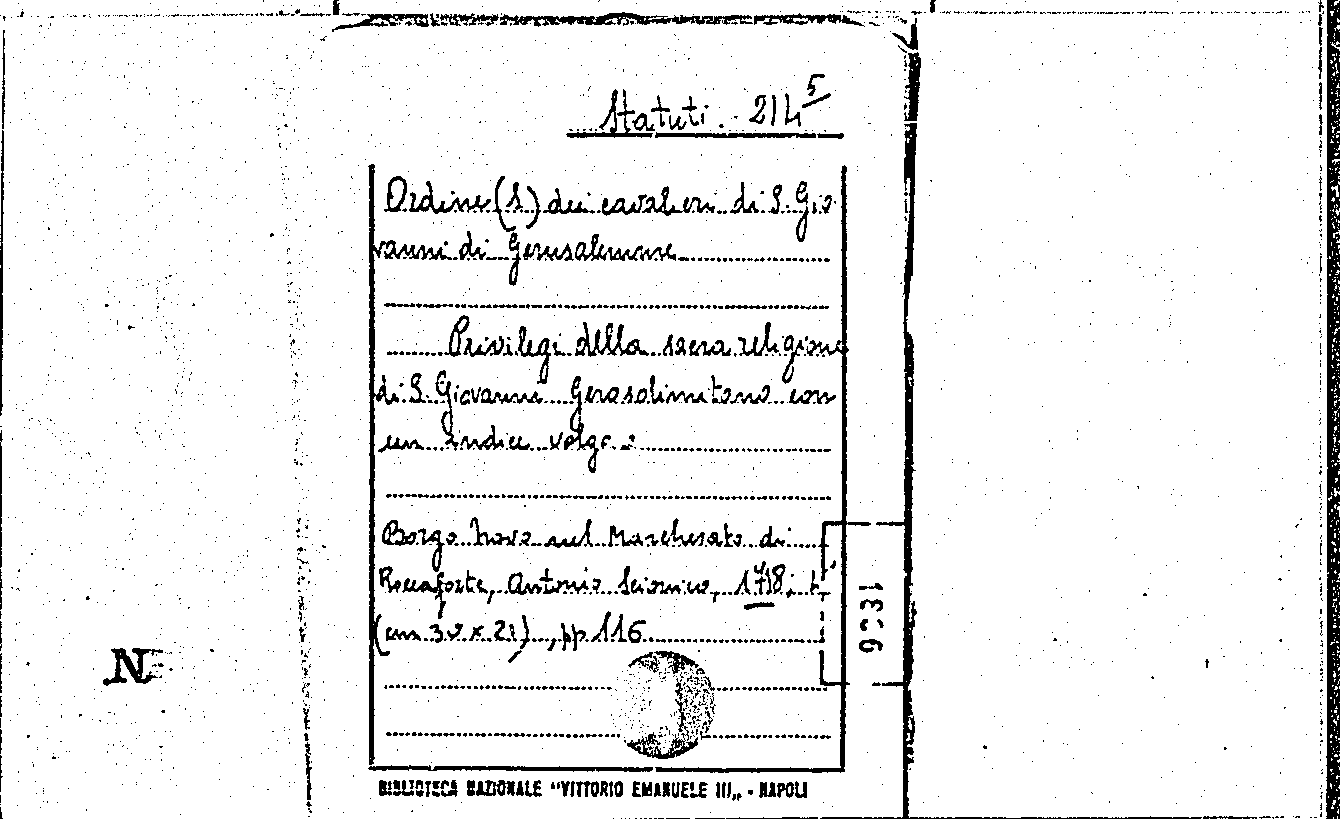 Statuti. 214⁵
Ordine (S) dei cavalieri di S. Gio
vanni di Gerusalemme
Privilegi della sacra religione
di S. Giovanni Gerosolimitano con
un indice volga
Borgo novo nel Marchesato di
Roccaforte, Antonio Scionico, 1718, t'
(cm 30 x 21), pp 116
1336
N
BIBLIOTECA NAZIONALE "VITTORIO EMANUELE III„ - NAPOLI